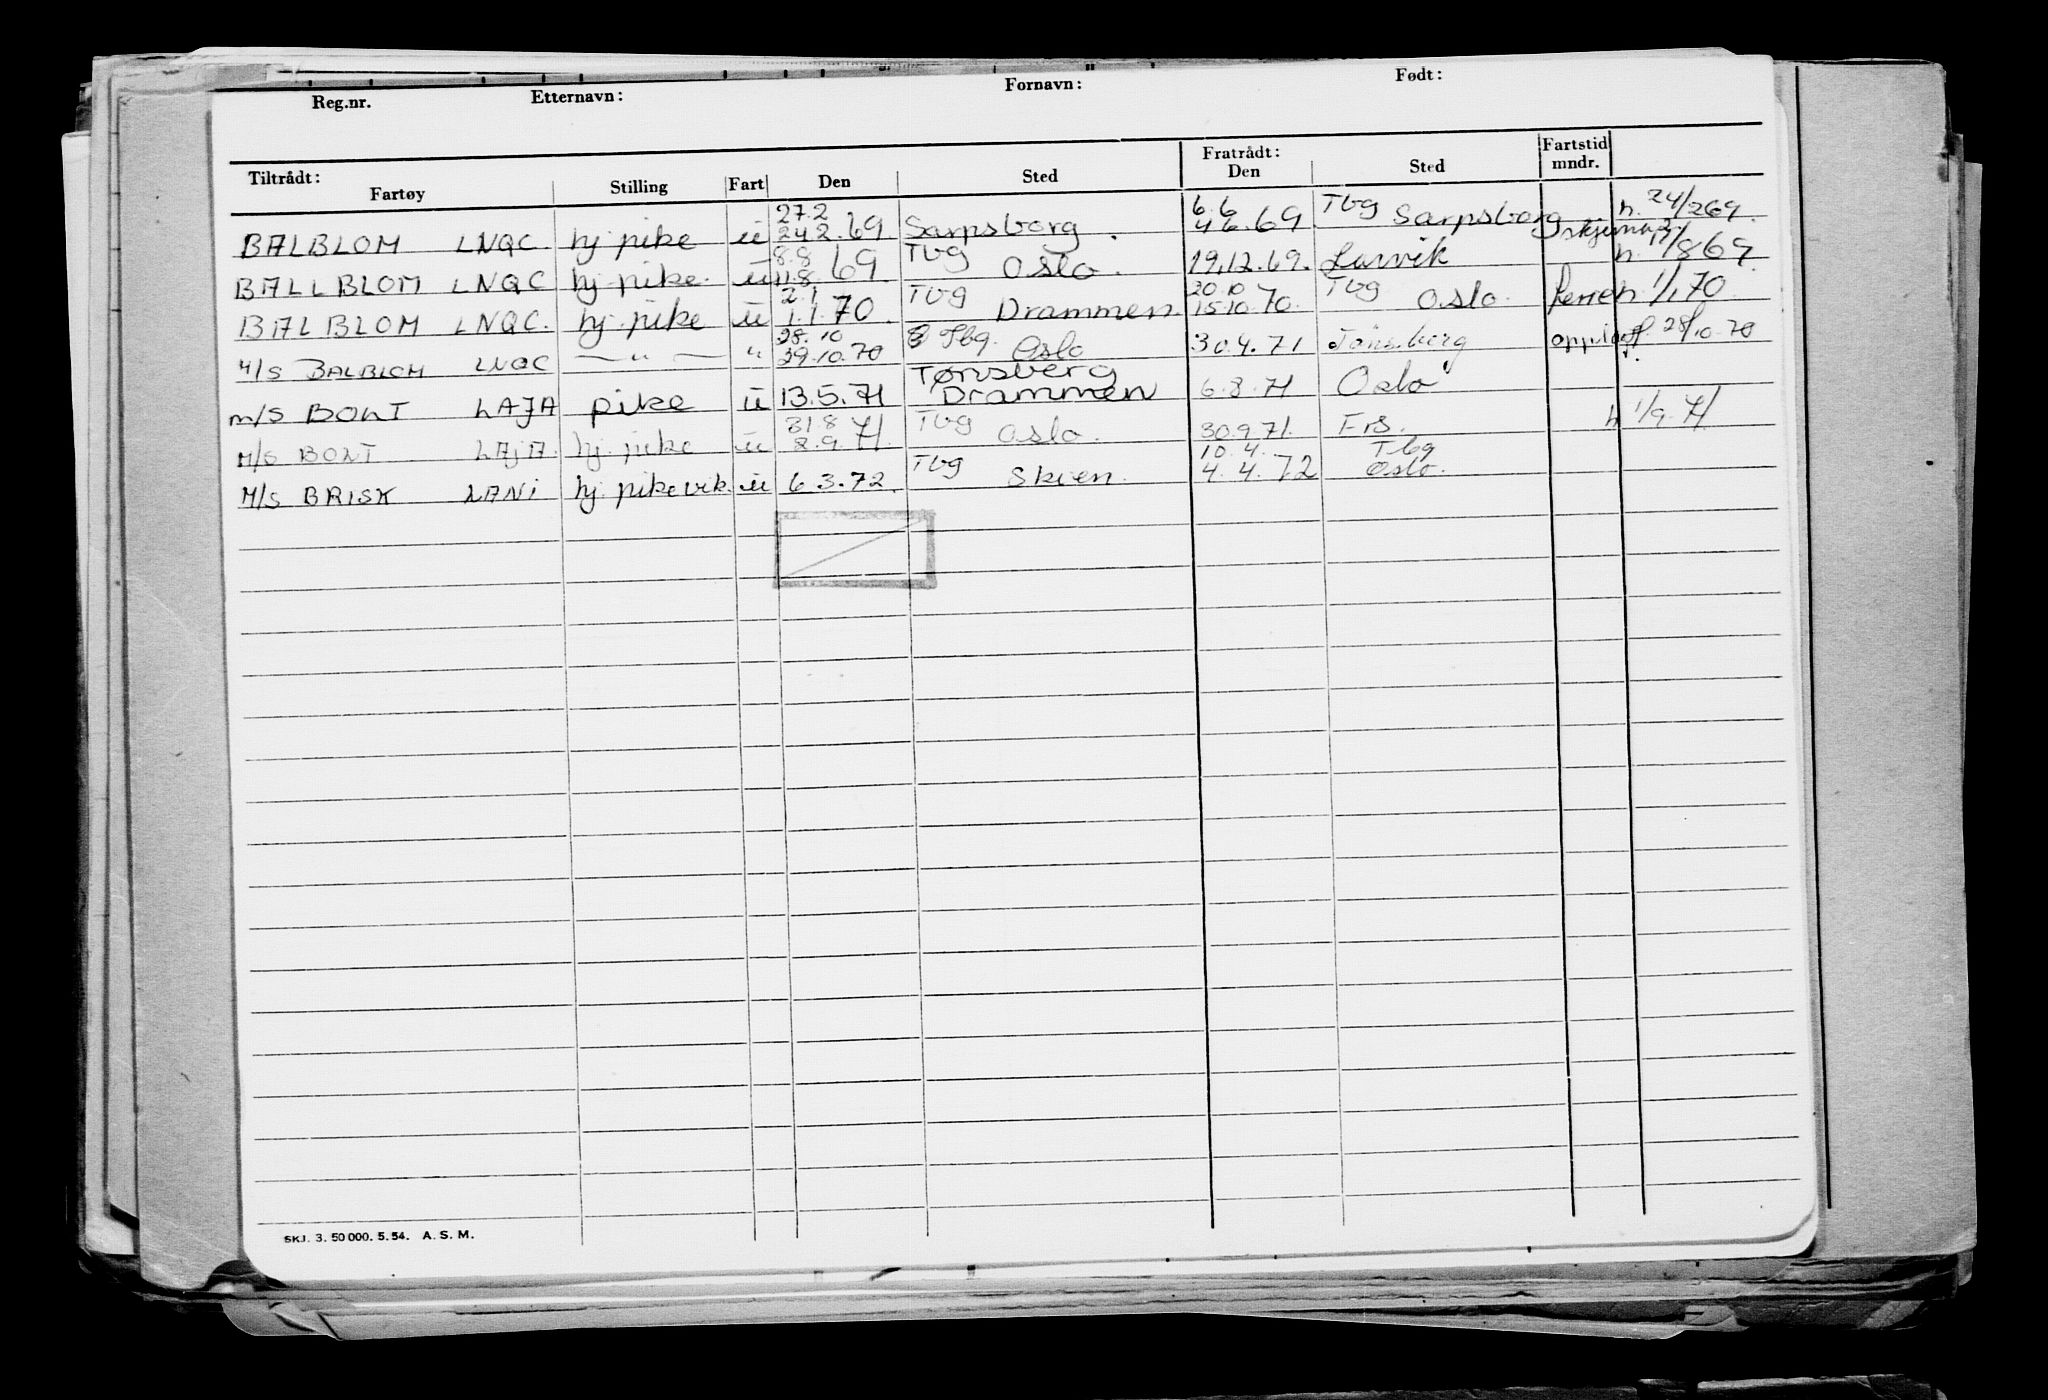 Reg.nr. Etternavn: Fornavn: Født:
Tiltrådt: Fratrådt: Fartstid
Fartøy Stilling Fart Den Sted Den Sted mndr.
27.2 6.6 Tbg
BALBLOM LNQC. hj pike u 24 2. 69 Sarpsborg. 4 6. 69. Sarpsborg h. 24/2 69.
8.8 Tbg
BALLBLOM LNQC hj. pike. u 11.8. 69 Oslo. 19.12.69. Larvik h. 17/8 69.
2.1 Tbg 20.10 Tbg
BALBLOM LNQC. hj. pike u 1.1.70. Drammen 15.10.70. Oslo. h. 1/1 70
28.10 Tbg.
M/S BALBLOM LNQC — " — " 29.10.70 Oslo 30.4.71 Tønsberg 28/10.70
Tønsberg
m/S BONT LAJA pike u 13.5.71 Drammen 6.8.71 Oslo
31.8 Tbg
M/S BONT LAJA. hj. pike u 2.9.71. Oslo. 30.9.71. Frs. h 1/9.71
Tbg 10.4. Tbg
M/S BRISK LANI hj. pikevik. u 6.3.72. Skien. 4.4.72 Oslo.
SKJ. 3. 50 000. 5. 54. A. S. M.